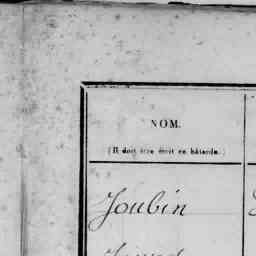 NOM.
(Il doit être écrit en bâtarde.)
Joubin